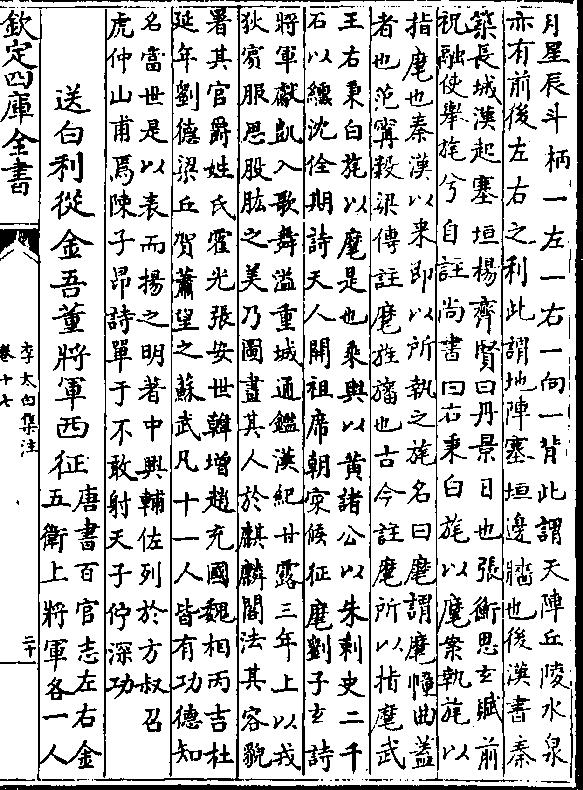 月星辰斗柄一左一右一向一背此謂天陣丘陵水泉
亦有前後左右之利此謂地陣塞垣邊牆也後漢書秦
築長城漢起塞垣楊齊賢曰丹景日也張衡思玄賦前
祝融使舉旄兮自註尚書曰右秉白旄以麾案執旄以
指麾也秦漢以来即以所執之旄名曰麾謂麾幢曲蓋
者也范寗穀梁傳註麾旌旛也古今註麾所以指麾武
王右秉白旄以麾是也乘輿以黄諸公以朱刺史二千
石以纁沈佺期詩天人開祖席朝寀候征麾劉子玄詩
將軍獻凱入歌舞溢重城通鑑漢紀甘露三年上以戎
狄賓服思股肱之美乃圖畫其人於麒麟閣法其容貌
署其官爵姓氏霍光張安世韓增趙充國魏相丙吉杜
延年劉德梁丘賀蕭望之蘇武凡十一人皆有功德知
名當世是以表而揚之明著中興輔佐列於方叔召
虎仲山甫焉陳子昂詩單于不敢射天子佇深功
送白利從金吾董將軍西征唐書百官志左右金
五衛上將軍各一人
欽定四庫全書
李太白集注
卷十七
二十